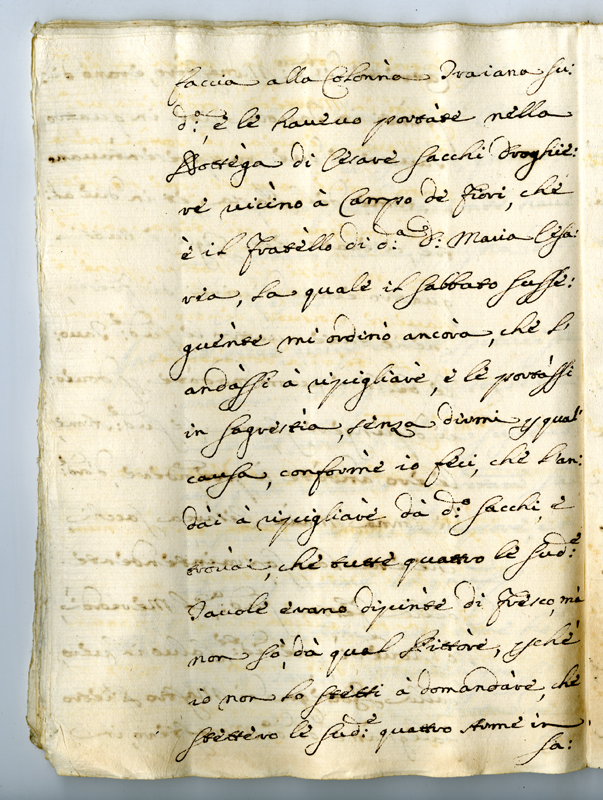 faccia alla Colonna Traiana su:
d.º, e le havevo portate nella
Bottèga di Cesare Sacchi Droghie:
re vicino à Campo de Fiori, che
è il Fratèllo di d.ª S.ª Maria Cesa:
rea, la quale il sabbato susse:
guènte mi ordinò ancòra, che l'
andàssi à ripigliare, e le portàssi
in sagrestia, senza dirmi p qual
causa, conforme io feci, che l'an:
dài à ripigliare dà d.º Sacchi, e
trovai, che tutte quattro le sud.e
Tavole erano dipinte di fresco, mà
non sò, dà qual Pittòre, pche
io non lo stetti à domandàre, che
stettèro le sud.e quattro Arme in
sa: